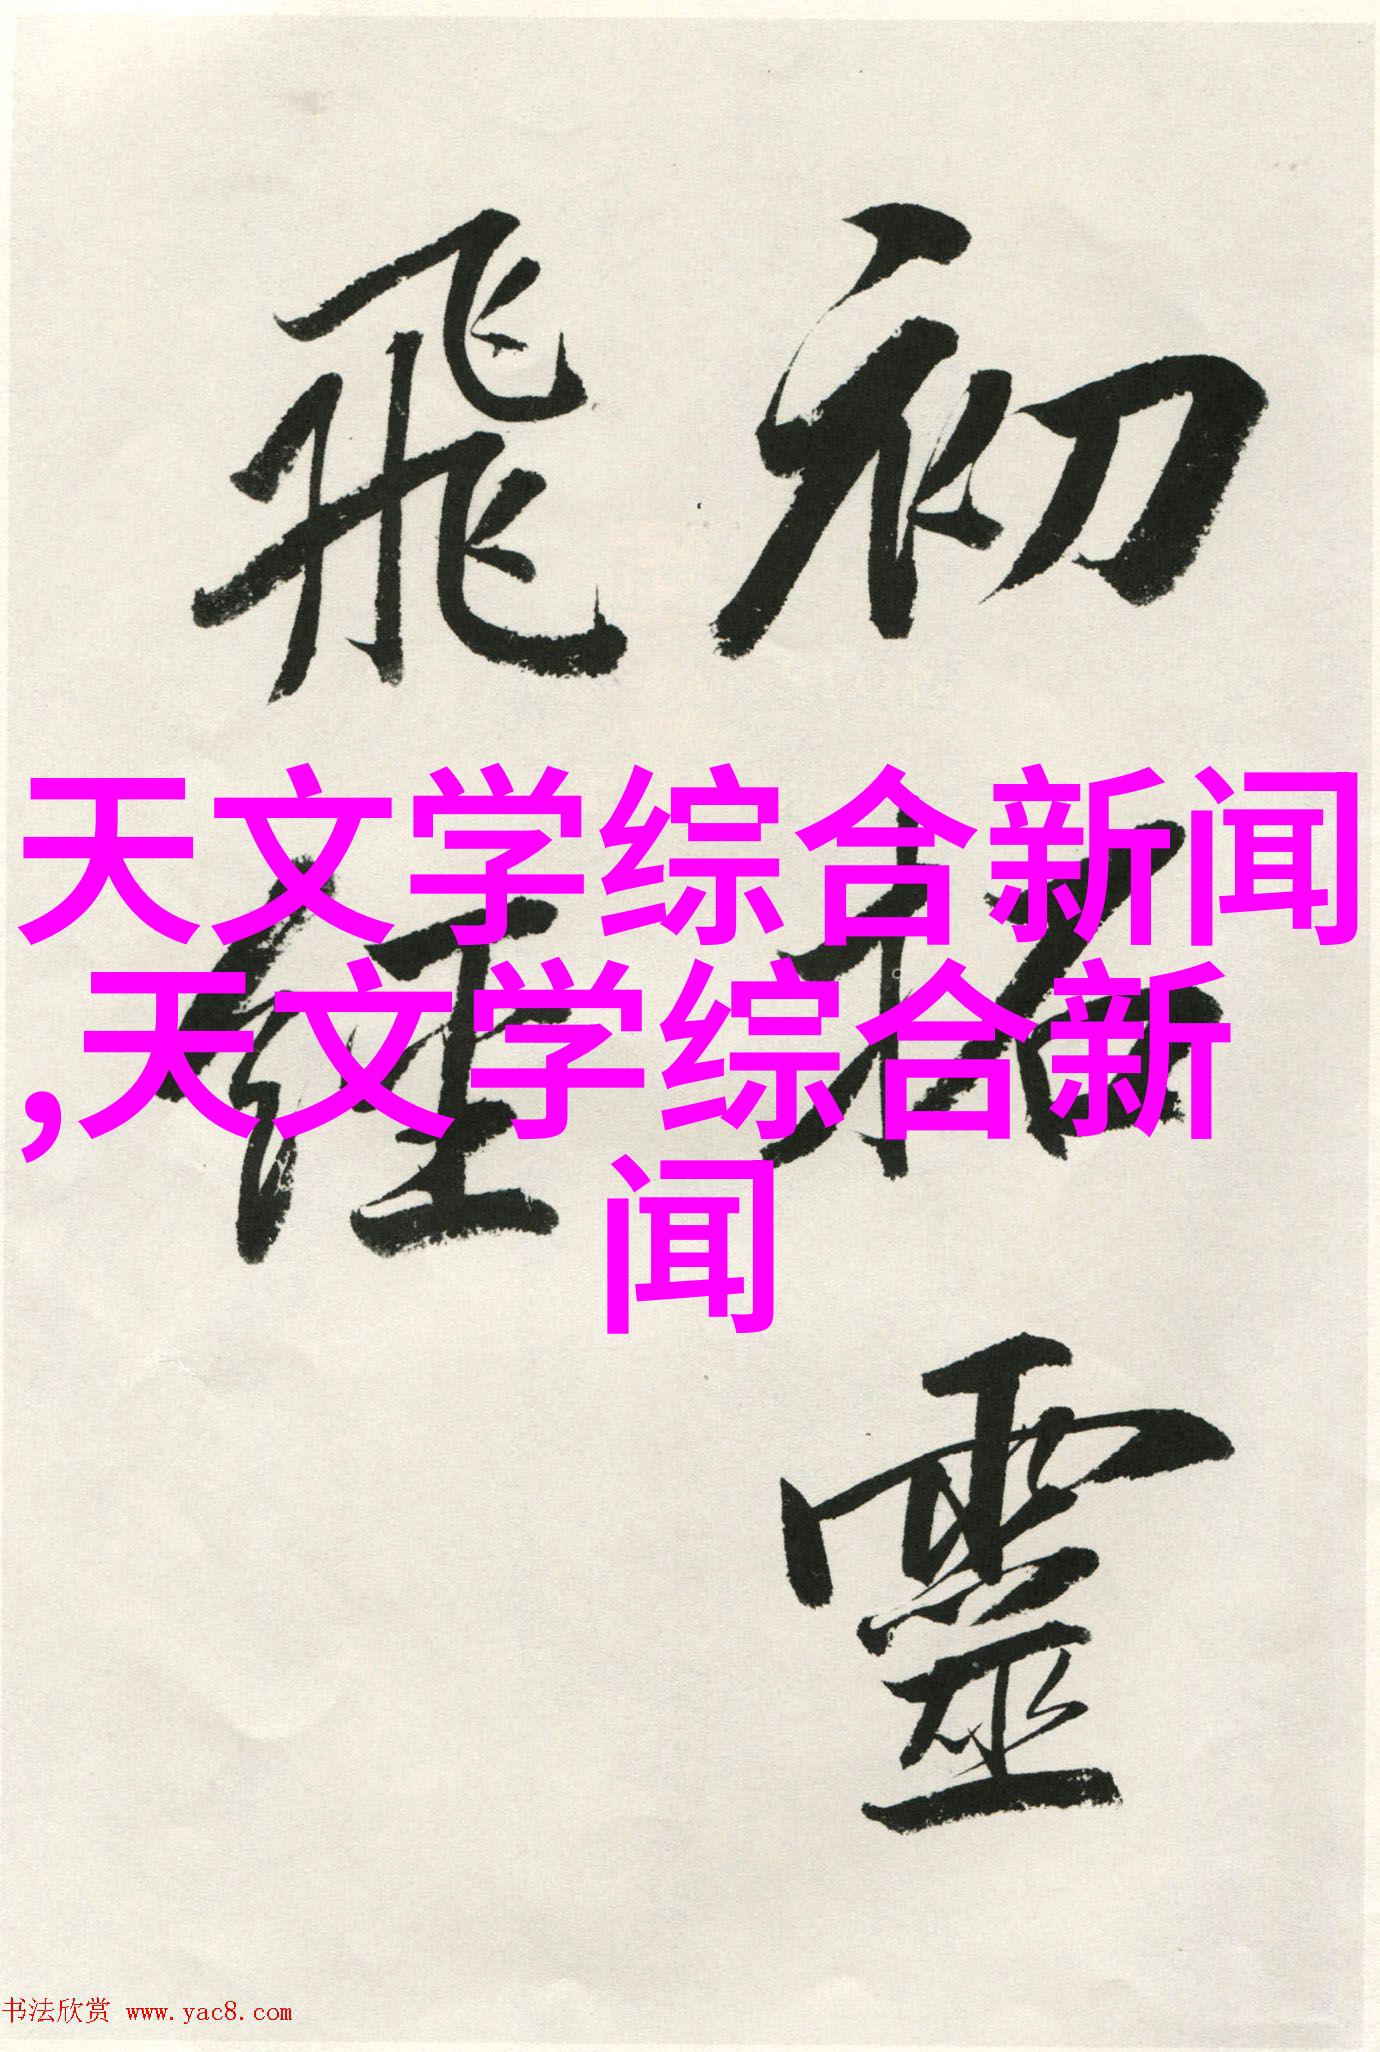 初拓靈
飛經
天文学综合新闻
,天文学综合新
闻
书法欣赏 www.yac8.com